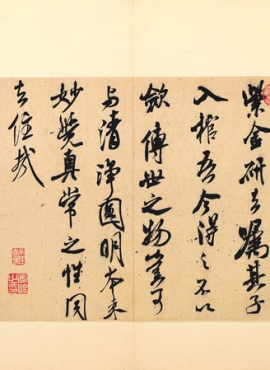 紫金研去囑其子
入棺吾今得之不以
斂傳世之物豈可
与清淨圓明本来
妙覺真常之性同
去住哉